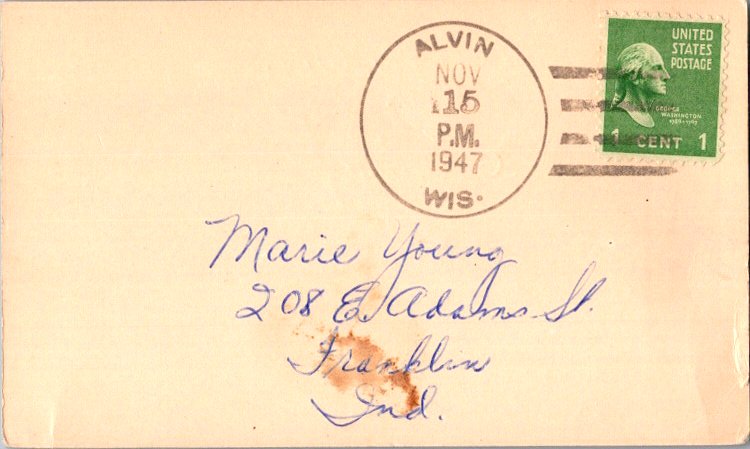 ALVIN
NOV
15
P.M.
1947
WIS.
UNITED
STATES
POSTAGE
GEORGE
WASHINGTON
1789-1797
1 CENT 1
Marie Young
208 E. Adams St.
Franklin
Ind.